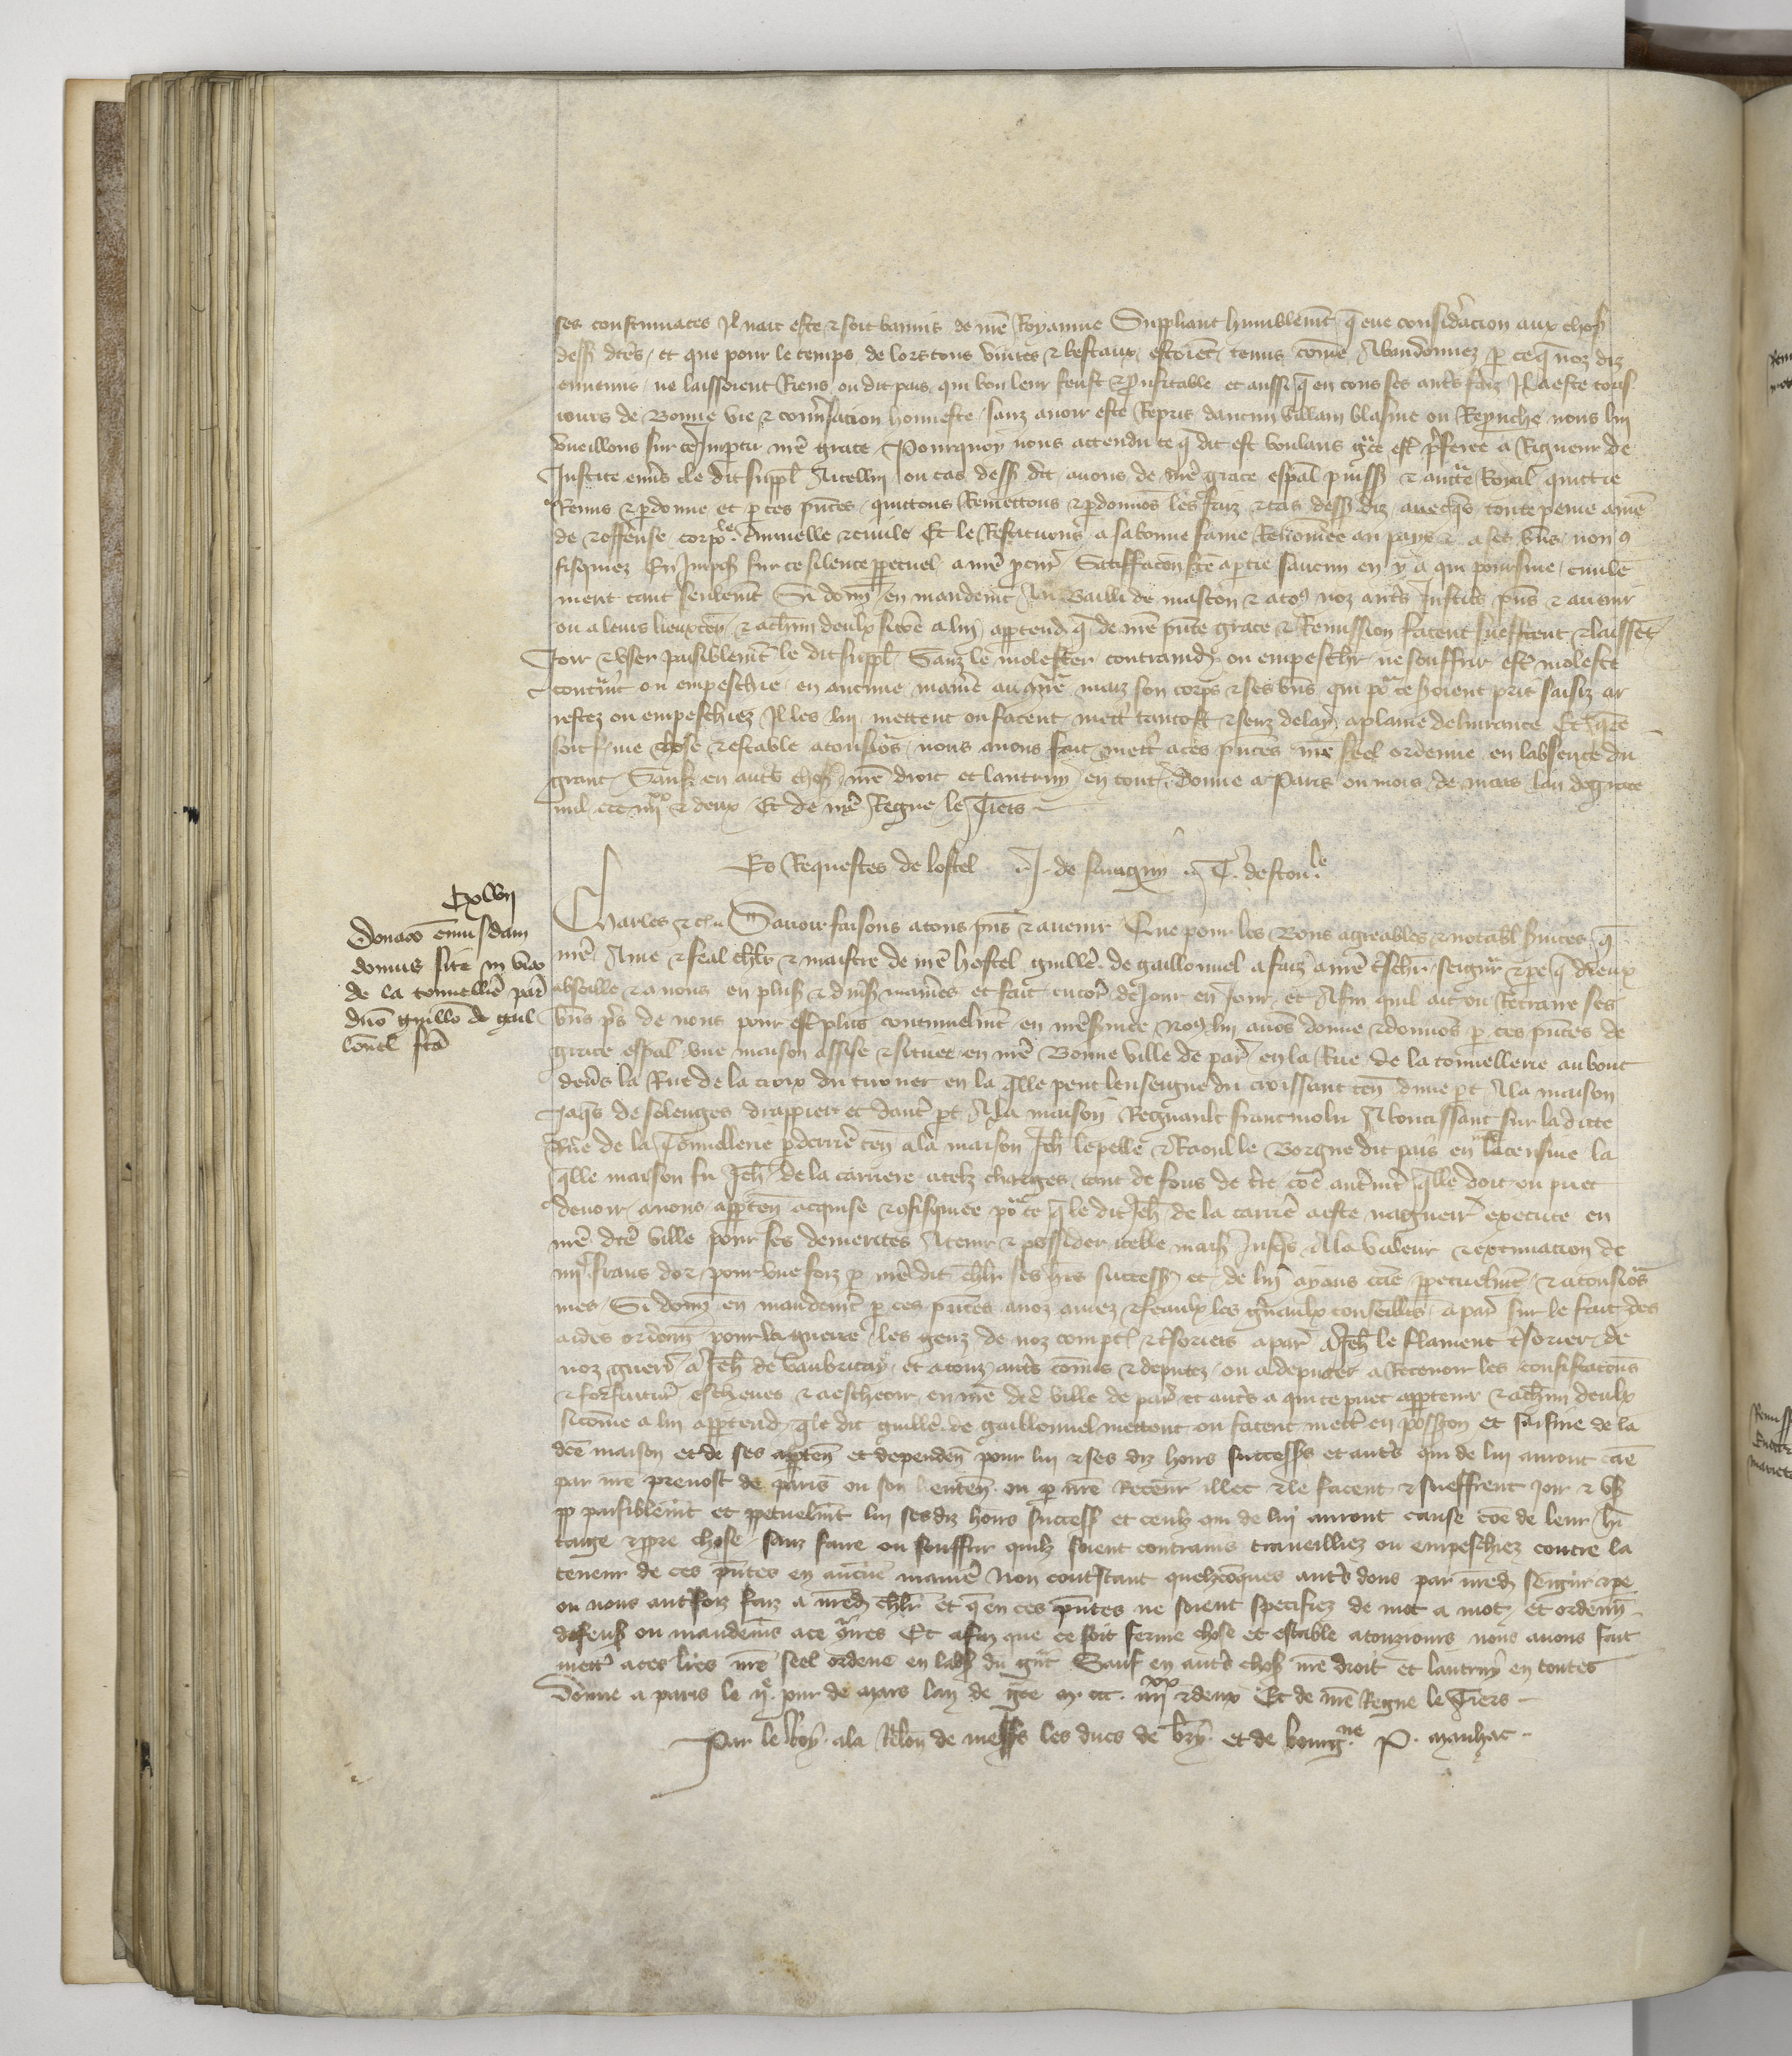 ses contumaces Il nait este & soit bannis de nr̄e Royaume Suppliant humblemt̄ q̄ eue consideracion aux choses
dess dcēs / et que pour le temps de lors tous vivres & bestaux estoiēt tenus cōme Abandonnez p ce q̄ noz diz
ennemis ne laissoient Riens ou dit pais qui bon leur feust & Proufitable et aussi q̄ en tous ses autʳs faiz Il a este tous
iours de Bonne vie & conv̄sacion honneste sanz avoir este Repris daucun villain blasme ou Reprouche nous lui
vueillons sur ce Impartir nr̄e grace Pourquoy nous attendu ce q̄ dit est voulans gᵃce est p̄feree a Rigueur de
Justice env̄s le dit suppl̄ Icellui ou cas dess dit avons de nr̄e grace esp̄al puiss & aucte Royal quittie
Remis & pdonne et p ces pn̄tes quittons Remettons & pdonnōs les faiz & cas dess diz avecq̄s toute peine amē
de & offense corpoˡᵉ Criminelle & civile Et le Restituons a sa bonne fame Renōmee au pays & a ses biēs non 9
fisquiez En Impos̄ sur ce silence ppetuel a nr̄e pcur Satisffaccōn fcē a ptie saucun en y a qui poursuive civile
ment tant seulemt̄ Si donn̄ en mandemt̄ Au Bailli de mascon & a to9 noz autʳs Justic̄s pn̄s & avenir
ou a leurs lieuxten̄ & a chūn deulx sicōe a lui apptend q̄ de nr̄e pn̄te grace & Remission facent sueffrent & laissēt
Joir & user paisiblemt̄ le dit suppl̄ Sanz le molester contraindʳ ou empeschʳ ne souffrir est moleste
contᵃint ou empeschie en aucune manie au 9tᵃre maiz son corps & ses biēs qui poʳ ce soient pris saisiz ar
restez ou empeschiez Il les lui mettent ou facent mettʳ tantost & senz delay a plaine delivrance Et q̄ ce
soit ferme chose & estable a tousiōs nous avons fait mettʳ a ces pn̄tes nr̄e seel ordenne en labsence du
grant Sauf en autʳs choses nr̄e droit et lautruy en toutʳ Donne a Paris ou mois de mars lan de grace
mil ccc iiijˣˣ & deux Et de nr̄e Regne le Tiers
Es Requestes de lostel J. de T. destouˡᵉ
Cxlvij
Donacō cuiusdam
domus site in vico
de la tonnellie par̄
dn̄o guillō de gail
lonel fcā
Charles &c. Savoir faisons a tous pn̄s & avenir Que pour les Bons agreables & notabl̄ s̄vices q̄
nr̄e Ame & feal chl̄r & maistre de nr̄e hostel guillē de gaillonnel a faiz a nr̄e tʳschʳ seigūr & pe q̄ dieux
absoille & a nous en plus̄ & div̄s manies et fait encorʳ de Jour en Jour et Afin quil ait ou Retraire ses
biēs pʳs de nous pour est plus continuelmt̄ en nr̄e s̄vice No9 lui avōs donne & donnōs p ces pn̄tes de
grace esp̄al une maison assise & situee en nr̄e Bonne ville de par̄ en la Rue de la tonnellerie au bout
dev̄s la Rue de la croix du tirouer en la q̄lle pent lenseigne du croissant ten̄ dune pt A la maison
Jaq̄s de solenges drappier et dautʳ pt A la maison Regnault francmolu Aboutissant sur la dicte
Rue de la Tonnellerie p derrie ten̄ a la maison Jeh̄ le pelle & Raoul le Borgne dit pais en la censive la
q̄lle maison fu Jeh̄ de la carriere a telz charges tant de fons de t̄re cōe autʳmt̄ q̄lle doit ou puet
devoir avons appten̄ acquise & 9fisquee poʳ ce q̄ le dit Jeh̄ de la carriē a este nagueirʳ execute en
nr̄e dcē ville pour ses demerites A tenir & possider icelle mais̄ Jusq̄s A la valeur & extimacion de
iiijᶜ frans dor pour une foiz p nr̄e dit chl̄r ses hirs success̄ et de lui ayans cāe ppetuelmt̄ & a tousiōs
mes Si donn̄ en mandemt̄ p ces pn̄tes a noz amez & feaulx les gn̄aulx conseillʳs a par̄ sur le fait des
aides ordenn̄ pour la guerre les genz de noz compt̄ & tʳsoriers a par̄ a Jeh̄ le flament tʳsorier de
noz guerʳs a Jeh̄ de vaubricay et a touz autʳs cōmis & deputez ou a deputer a Recevoir les confiscacōns
& forfaiturʳ escheues & a escheoir en nr̄e dcē ville de par̄ et autʳs a qui ce puet apptenir & a chūn deulx
sicōme a lui apptend q̄ le dit guillē de gaillonnel mettont ou facent mettʳ en possion et saisine de la
dcē maison et de ses appten̄ et dependen̄ pour lui & ses diz hoirs success̄s et autʳs qui de lui auront cāe
par nr̄e prevost de paris ou son lieuten̄ ou p nr̄e Recevr illec & le facent & sueffrent joir & us̄
p paisiblemt̄ et ppetuelmt̄ lui ses diz hoirs success̄ et ceulx qui de lui auront cause cōe de leur hʳi
taige & ppre chose sanz faire ou souffrir quilz soient contrains traveilliez ou empeschiez contre la
teneur de ces pn̄tes en aucune manie Non contʳstant quelzcōques autʳs dons par nr̄ed seigūr & pe
ou nous autʳfoiz faiz a nr̄ed chl̄r et q̄ en ces pn̄tes ne soient specifiez de mot a mot et ordenn̄
defens̄ ou mandemēs a ce 9tᵃres Et afin que ce soit ferme chose et estable a touziours nous avons fait
mettʳ a ces lr̄es nr̄e seel ordene en labs̄ du gᵃnt Sauf en autʳs choses nr̄e droit et lautruy en toutes
Donne a paris le ijᵉ jour de mars lan de gᵃce m ccc. iiijˣˣ & deux Et de nr̄e Regne le Tiers
Par le Roy a la Rel̄on de mess̄s les ducs de br̄y et de bourgⁿᵉ P. manhac